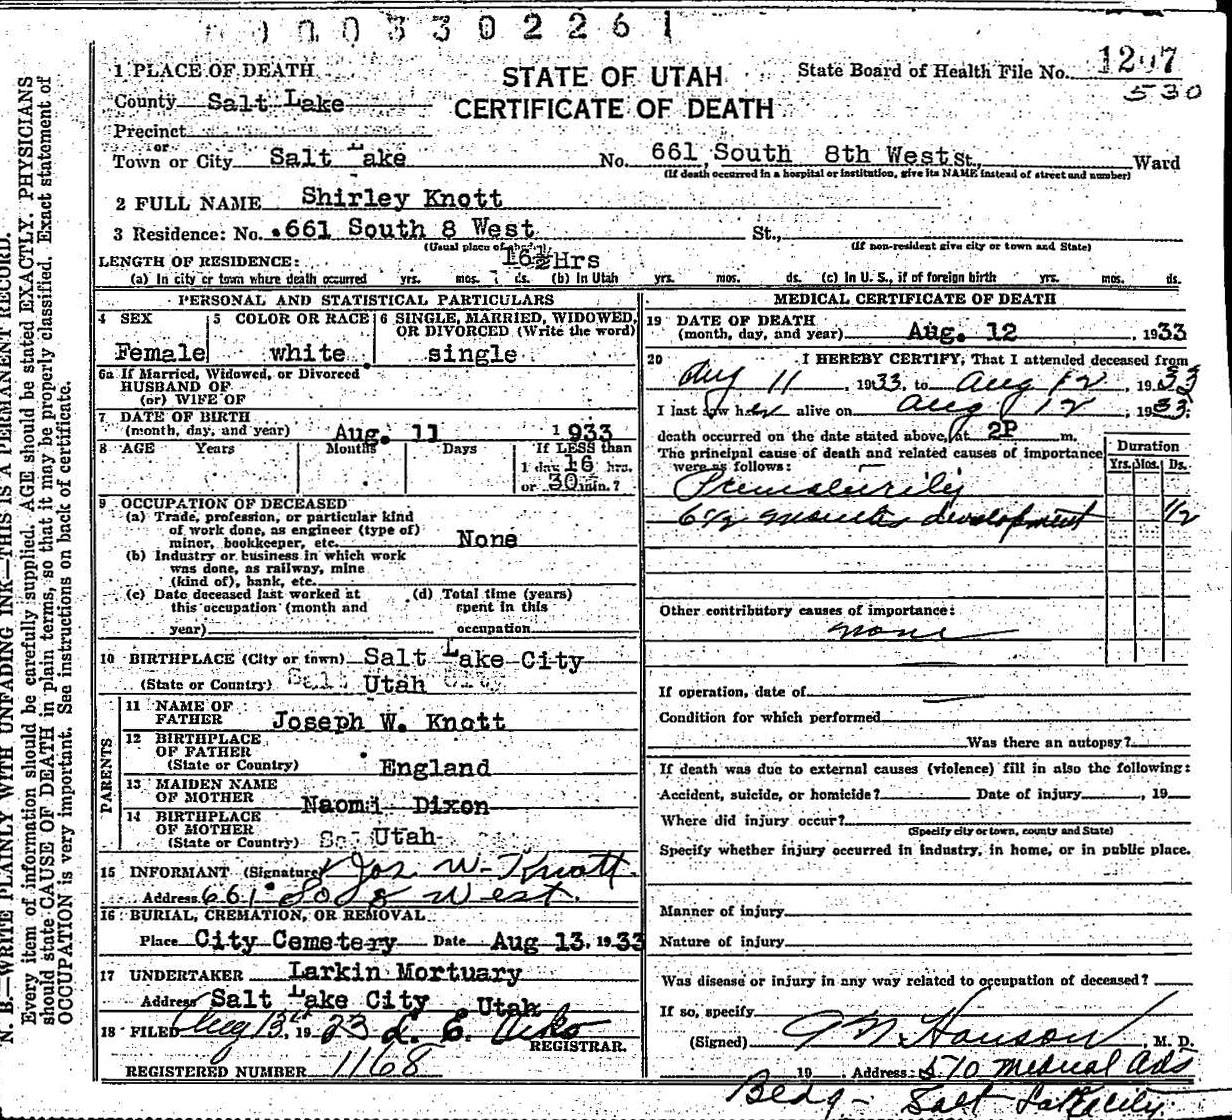 0003302261
1 PLACE OF DEATH
STATE OF UTAH
CERTIFICATE OF DEATH
State Board of Health File No. 1207
530
County Salt Lake
Precinct
or
Town or City Salt Lake No. 661 South 8th West St., Ward
(If death occurred in a hospital or institution, give its NAME instead of street and number)
2 FULL NAME Shirley Knott
3 Residence: No. 661 South 8 West St.,
(Usual place of abode) (If non-resident give city or town and State)
LENGTH OF RESIDENCE: 16½ Hrs
(a) In city or town where death occurred yrs. mos. ds. (b) In Utah yrs. mos. ds. (c) In U. S., if of foreign birth yrs. mos. ds.
PERSONAL AND STATISTICAL PARTICULARS
4 SEX Female
5 COLOR OR RACE white
6 SINGLE, MARRIED, WIDOWED, OR DIVORCED (Write the word) single
6a If Married, Widowed, or Divorced
HUSBAND OF
(or) WIFE OF
7 DATE OF BIRTH
(month, day, and year) Aug. 11 1933
8 AGE Years Months Days If LESS than
1 day 16 hrs.
or 30 min.?
9 OCCUPATION OF DECEASED
(a) Trade, profession, or particular kind
of work done, as engineer (type of)
miner, bookkeeper, etc. None
(b) Industry or business in which work
was done, as railway, mine
(kind of), bank, etc.
(c) Date deceased last worked at
this occupation (month and
year)
(d) Total time (years)
spent in this
occupation
10 BIRTHPLACE (City or town) Salt Lake City
(State or Country) Utah
PARENTS
11 NAME OF
FATHER Joseph W. Knott
12 BIRTHPLACE
OF FATHER
(State or Country) England
13 MAIDEN NAME
OF MOTHER Naomi Dixon
14 BIRTHPLACE
OF MOTHER
(State or Country) Utah
15 INFORMANT (Signature) Jos. W. Knott
Address 661 So 8 West.
16 BURIAL, CREMATION, OR REMOVAL
Place City Cemetery Date Aug 13, 1933
17 UNDERTAKER Larkin Mortuary
Address Salt Lake City Utah
18 FILED Aug 13, 19 23 L. E.
REGISTRAR.
REGISTERED NUMBER 1168
MEDICAL CERTIFICATE OF DEATH
19 DATE OF DEATH
(month, day, and year) Aug. 12, 1933
20 I HEREBY CERTIFY, That I attended deceased from
Aug 11, 1933, to Aug 12, 1933
I last saw her alive on Aug 12, 1933
death occurred on the date stated above, at 2P m.
The principal cause of death and related causes of importance
were as follows:
Duration
Yrs. Mos. Ds.
Prematurity
6½ months development 1/2
Other contributory causes of importance:
none
If operation, date of
Condition for which performed
Was there an autopsy?
If death was due to external causes (violence) fill in also the following:
Accident, suicide, or homicide? Date of injury , 19
Where did injury occur?
(Specify city or town, county and State)
Specify whether injury occurred in industry, in home, or in public place.
Manner of injury
Nature of injury
Was disease or injury in any way related to occupation of deceased?
If so, specify
(Signed) Hanson, M. D.
19 Address: 510 Medical Arts
Bldg - Salt Lake City
N. B.—WRITE PLAINLY WITH UNFADING INK—THIS IS A PERMANENT RECORD.
Every item of information should be carefully supplied. AGE should be stated EXACTLY. PHYSICIANS
should state CAUSE OF DEATH in plain terms, so that it may be properly classified. Exact statement of
OCCUPATION is very important. See instructions on back of certificate.